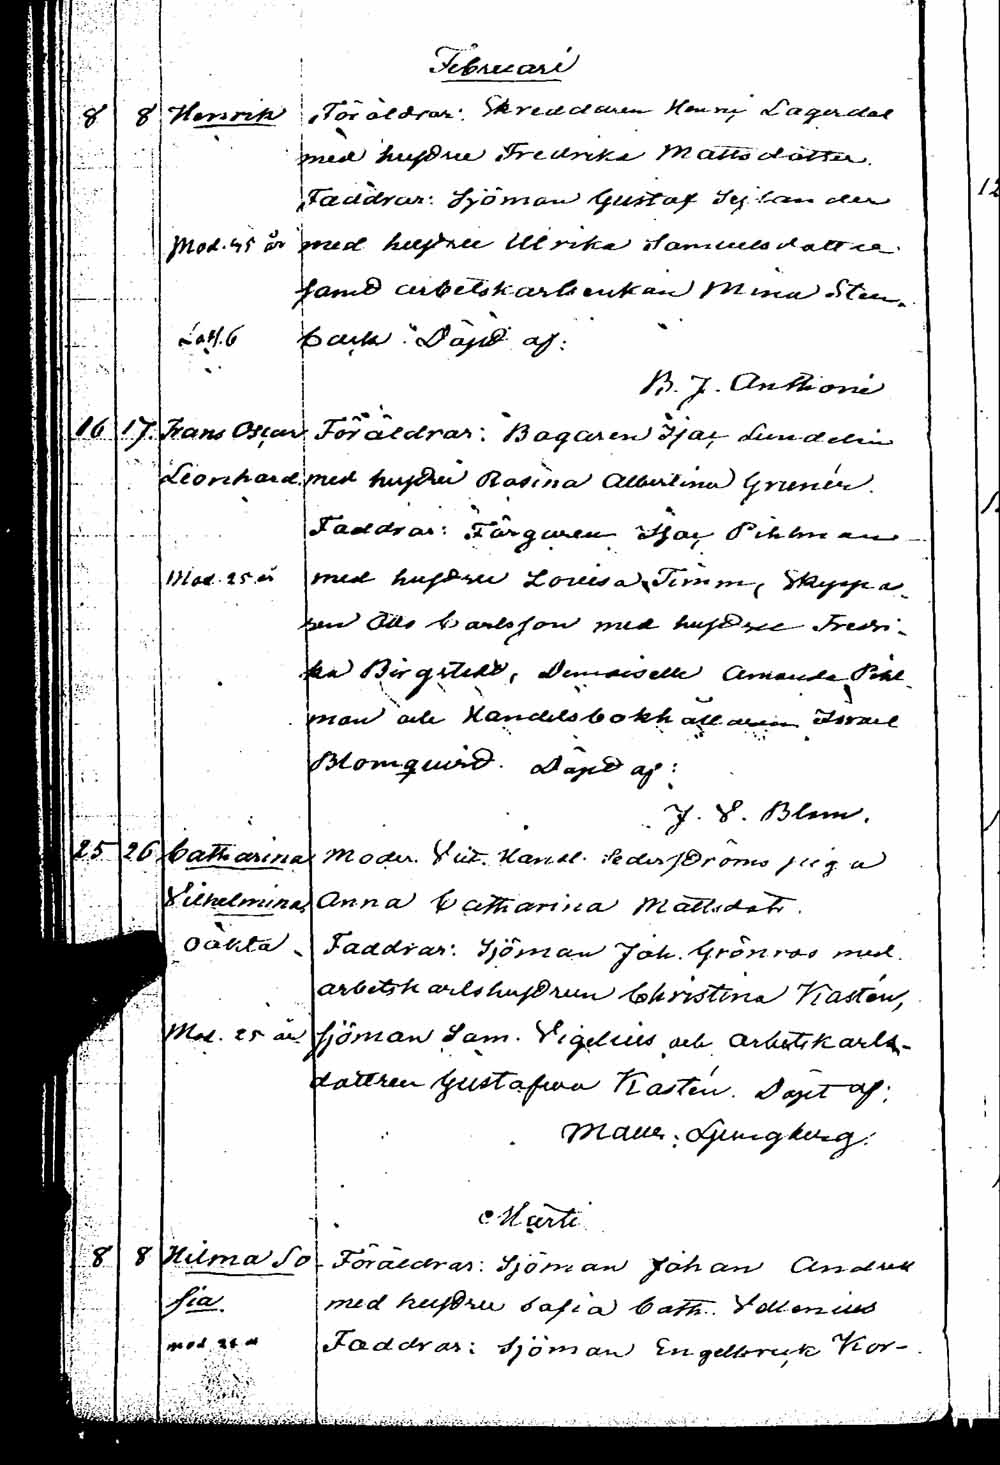 Februari
8 8 Henrik Föräldrar: Skreddaren Henrj Lagerdal
med hustru Fredrika Mattsdotter.
Faddrar: Sjöman Gustaf
Mod. 45 år med hustru Ulrika Samuelsdotter
samt arbetskarlsenkan Mina Sten-
back. Döpt af:
B. J. Anthoni
16 17. Frans Oscar Föräldrar: Bagaren Isac Lundelin
Leonhard med hustru Rosina Albertina Grunér.
Faddrar: Färgaren Isac Pihlman
Mod. 25 år med hustru Lovisa Timm, Skeppa-
ren Otto Carlsson med hustru Fredri-
ka Birgstedt, Demoiselle Amanda Pihl-
man och Handelsbokhållaren Israel
Blomqvist. Döpt af:
J. V. Blom.
25 26 Catharina Moder. Vict. Handl. Sederströms piga
Vilhelmina Anna Catharina Mattsdotr.
oäkta. Faddrar: Sjöman Joh. Grönroos med
arbetskarlshustrun Christina Kastén,
Mod. 25 år sjöman Sam. Vigelius och arbetskarls-
dottren Gustafva Kastén. Döpt af:
Ljungberg.
Marti
8 8 Hilma So- Föräldrar: Sjöman Johan
fia. med hustru Sofia Cath.
mod. Faddrar: Sjöman Engelbrekt Kor-